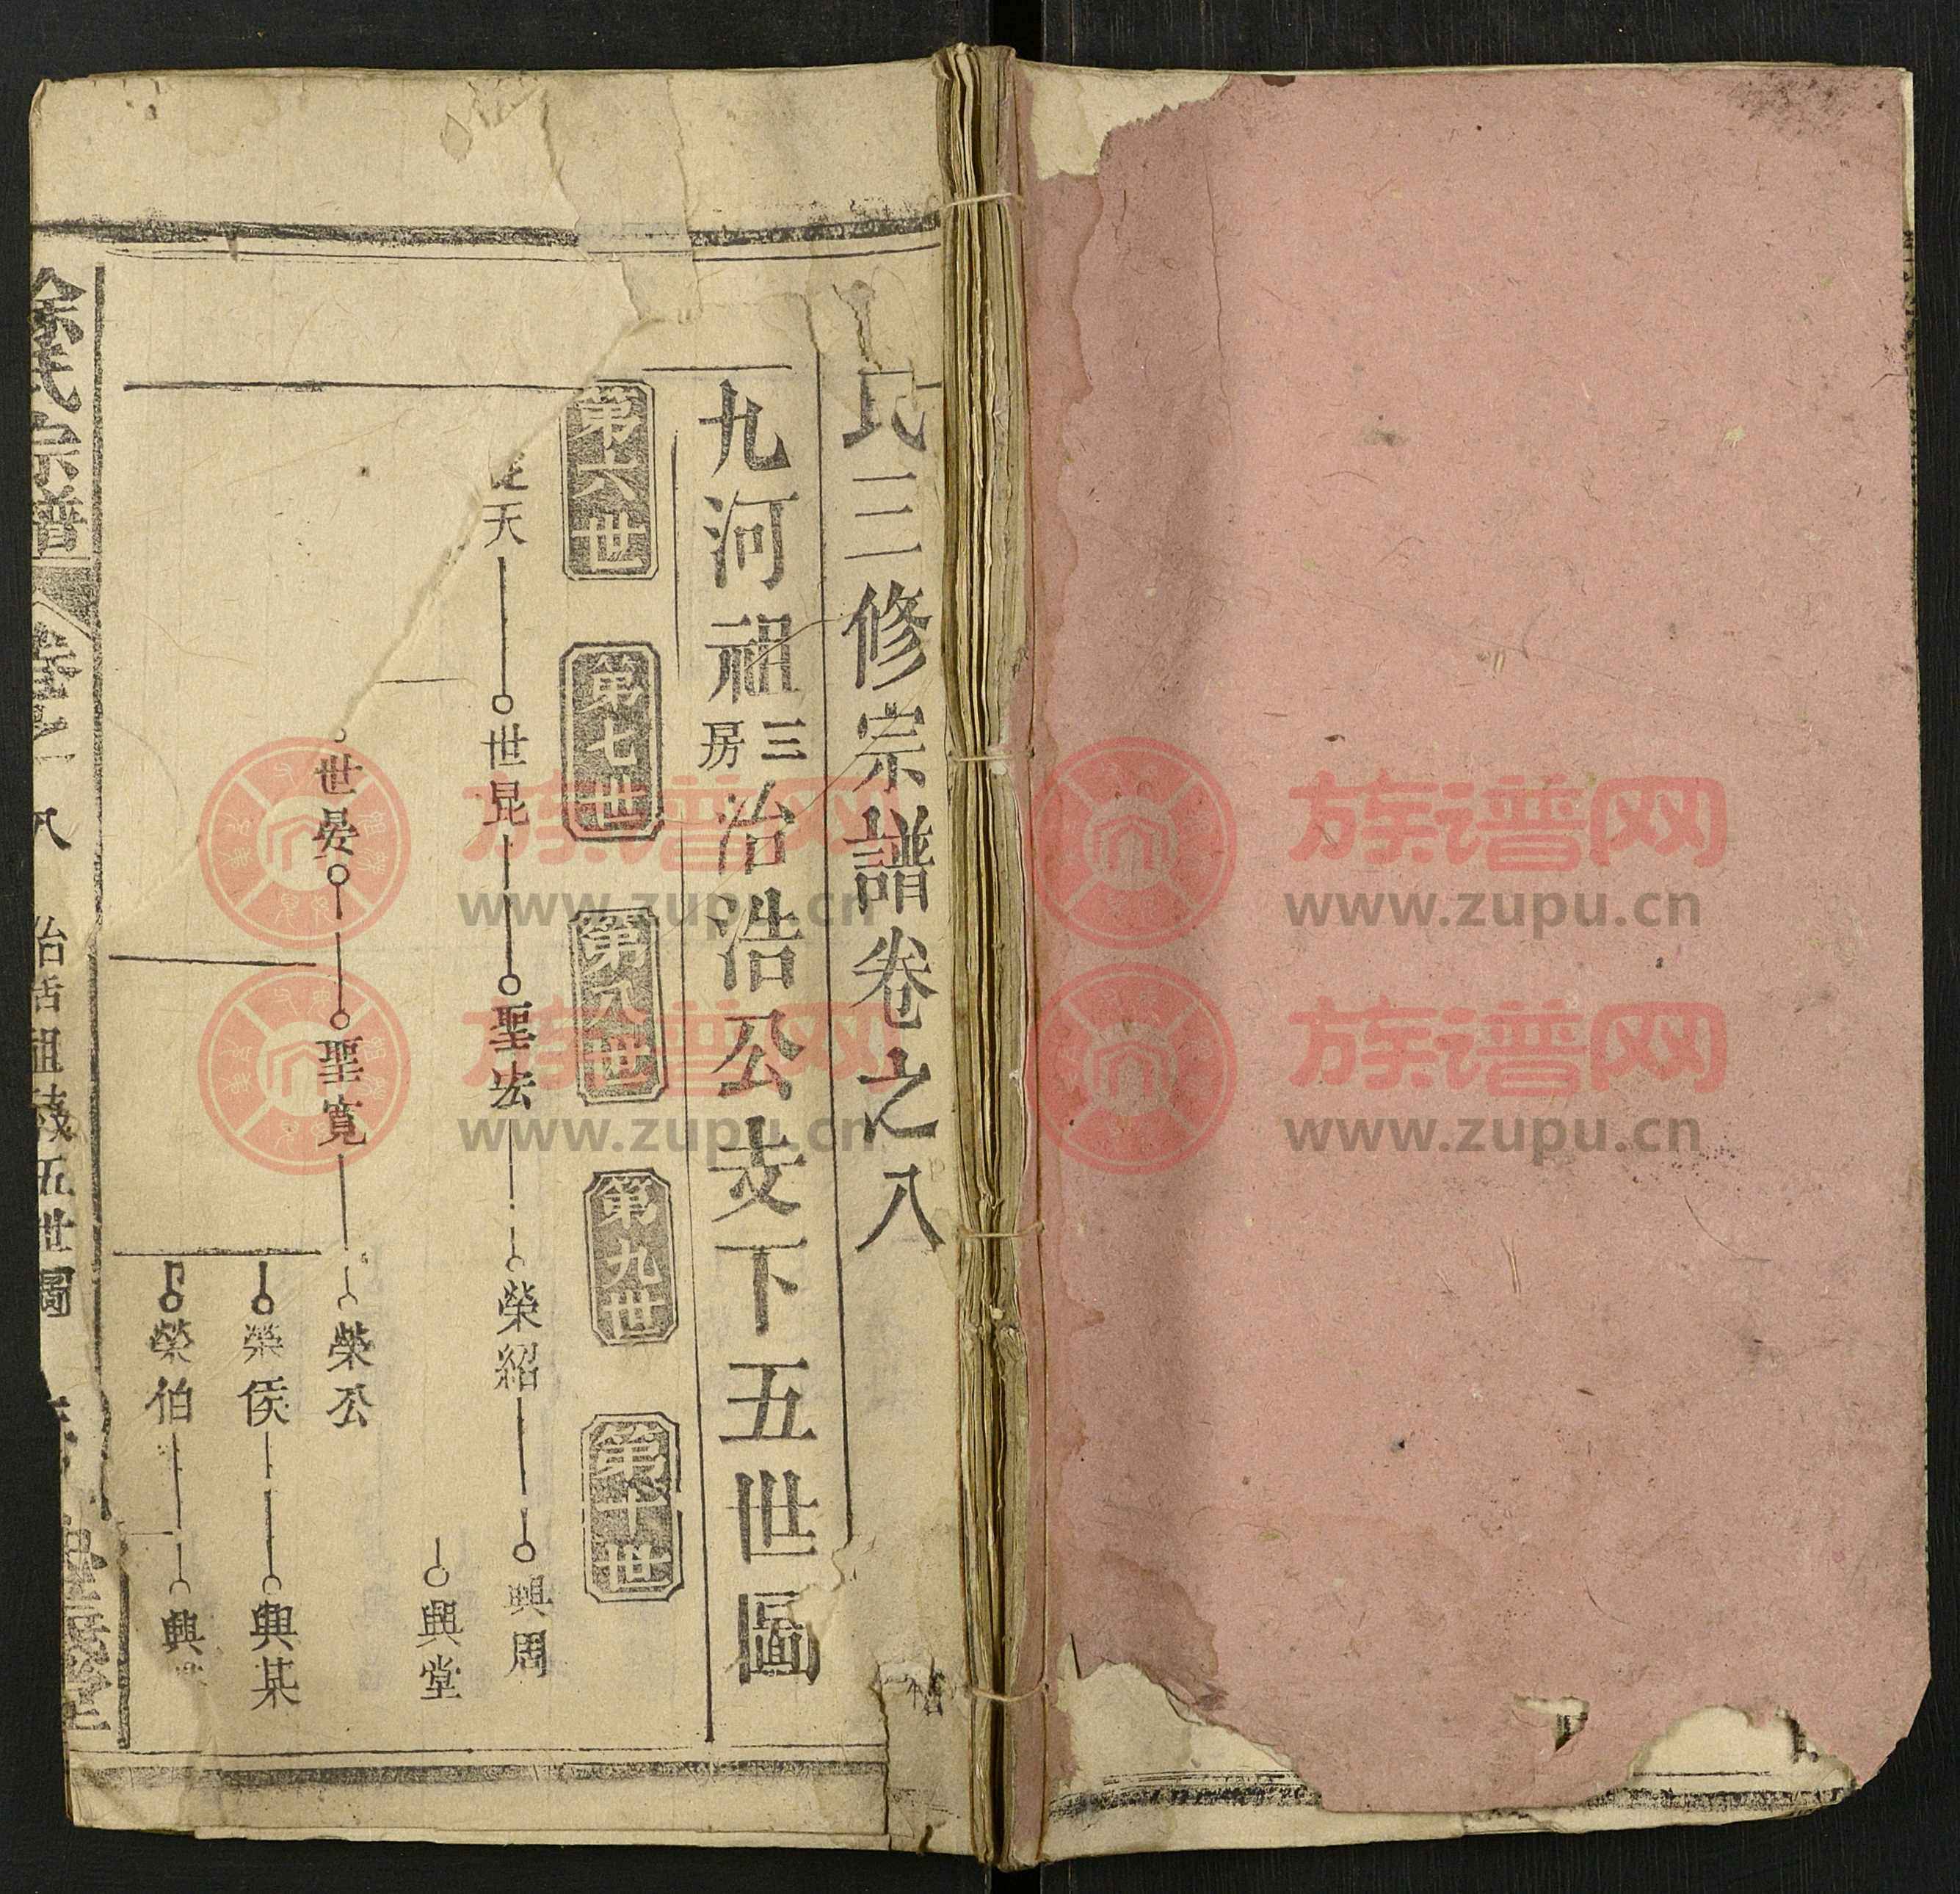 氏三修宗譜卷之八
九河祖三房治浩公支下五世圖
第六世
第七世
第八世
第九世
第十世
天
世昆
聖宏
榮紹
興周
興堂
世晏
聖寬
榮公
榮侯
興某
榮伯
興
徐氏宗譜
卷之八
治浩祖枝五世圖
族谱网
www.zupu.cn
族谱网
www.zupu.cn
族谱网
www.zupu.cn
族谱网
www.zupu.cn